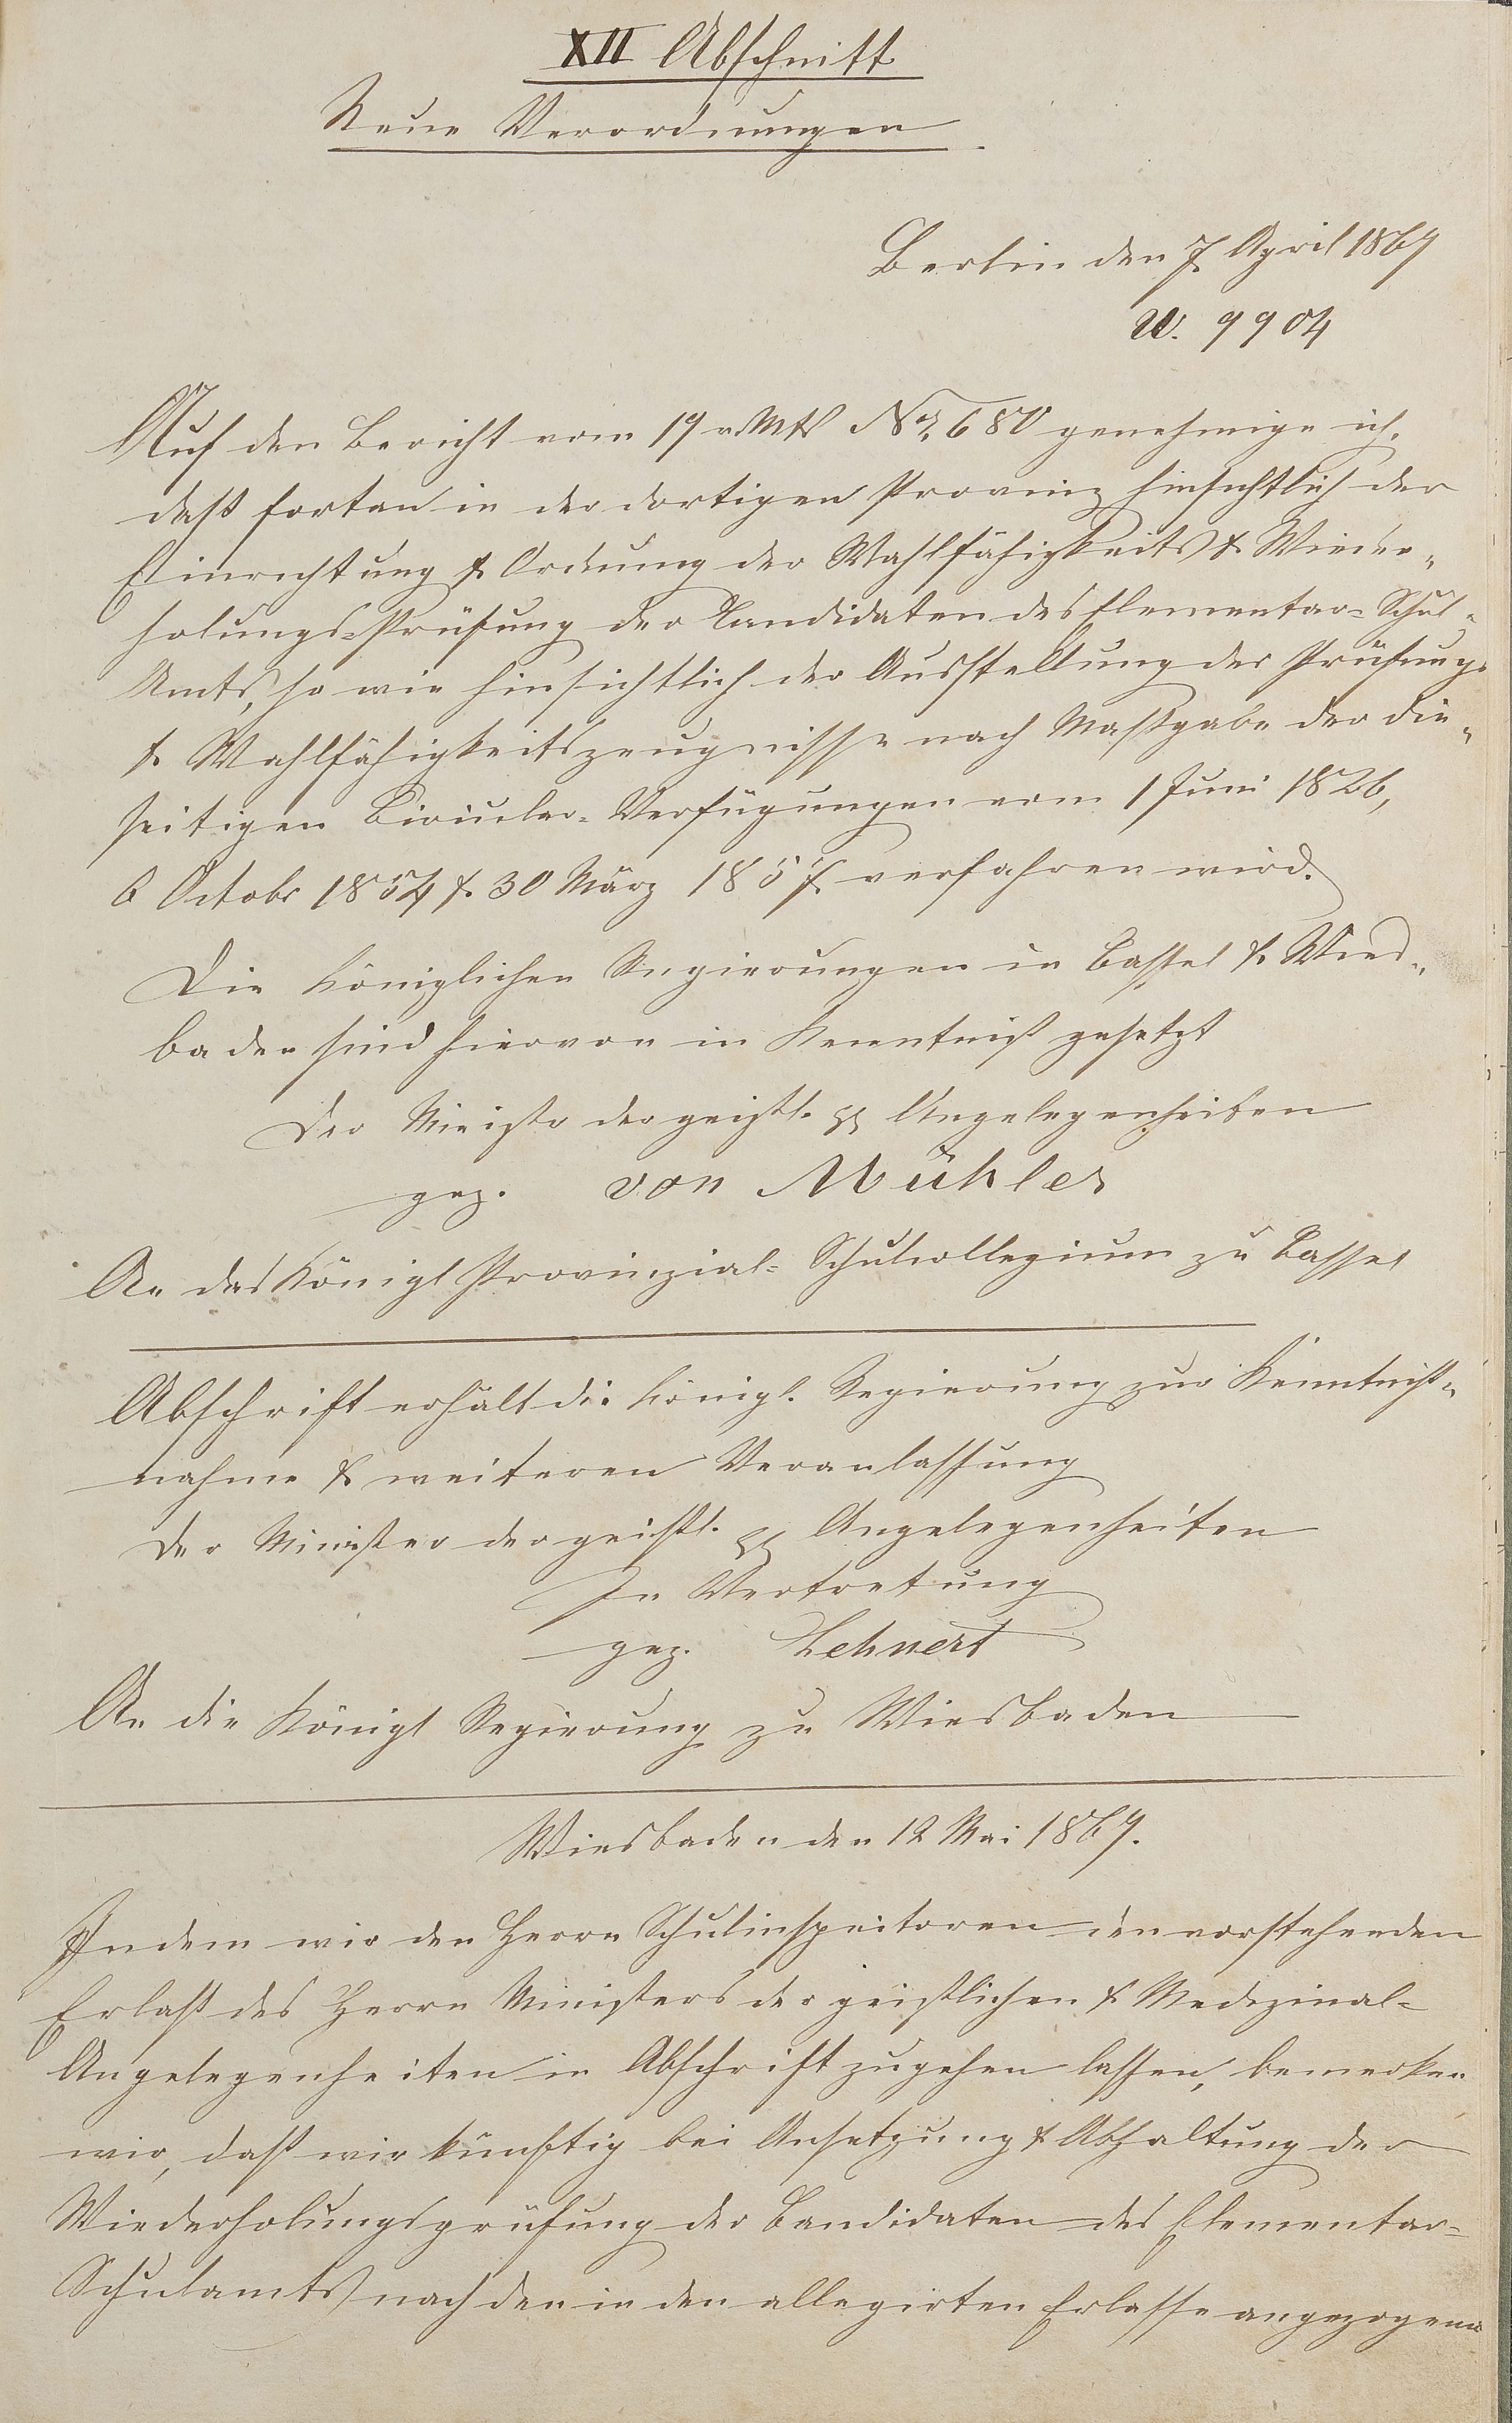 XII Abschnitt
Neue Verordnungen.
Berlin den 7 April 1869
U. 9904
Auf den Bericht vom 19 v Mts No. 680 genehmige ich,
daß fortan in der dortigen Provinz hinsichtlich der
Einrichtung & Ordnung der Wahlfähigkeits & Wieder-
holungs-Prüfung der Candidaten des Elementar-Schul-
Amts, so wie hinsichtlich der Ausstellung der Prüfungs
& Wahlfähigkeitszeugnisse nach Maßgabe der die-
seitigen Circular-Verfügungen vom 1 Juni 1826,
6 Octobr 1854 & 30 März 1857 verfahren wird.
Die Königlichen Regierungen in Cassel & Wies-
baden sind hiervon in Kenntniß gesetzt
Der Ministr der geistl. pp Angelegenheiten
gez. von Mühler
An das Königl Provinzial-Schulcollegium zu Cassel
Abschrift erhält die Königl. Regierung zur Kenntniß-
nahme & weiteren Veranlassung
Der Minister der geistl. pp Angelegenheiten
In Vertretung
gez. Lehnert
An die Königl Regierung zu Wiesbaden
Wiesbaden den 12 Mai 1869.
Indem wir den Herrn Schulinspectoren den vorstehenden
Erlaß des Herrn Ministers der geistlichen & Medizinal-
Angelegenheiten in Abschrift zugehen lassen, bemerken
wir, daß wir künftig bei Ansetzung & Abhaltung der
Wiederholungsprüfung der Candidaten des Elementar-
Schulamts nach den in den allegirten Erlasse angezogenen